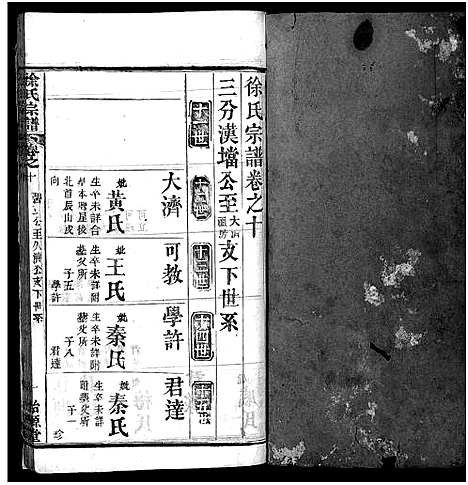 徐氏宗譜卷之十
三分漢壋公至大濟祖房支下世系
十一世
十二世
十三世
十四世
十五世
大濟
妣黃氏
生卒未詳合
北首辰山戌
向
可教
妣王氏
生卒未詳附
塟父所
子五
學許
學許
妣秦氏
生卒未詳附
塟父所
子八
君達
君達
妣秦氏
生卒未詳
附塟父所
子一
珍
徐氏宗譜
卷之十
公至大濟公支下世系
一
怡源堂